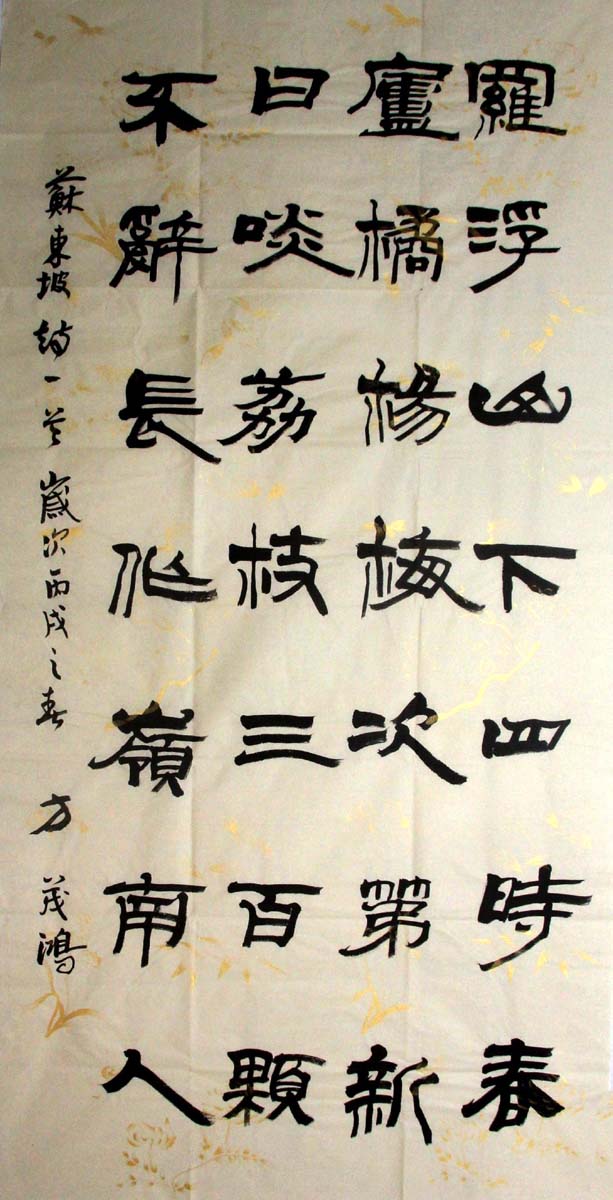 羅浮山下四時春
廬橘楊梅次第新
日啖荔枝三百顆
不辭長作嶺南人
蘇東坡詩一首 歲次丙戌之春 方茂鴻